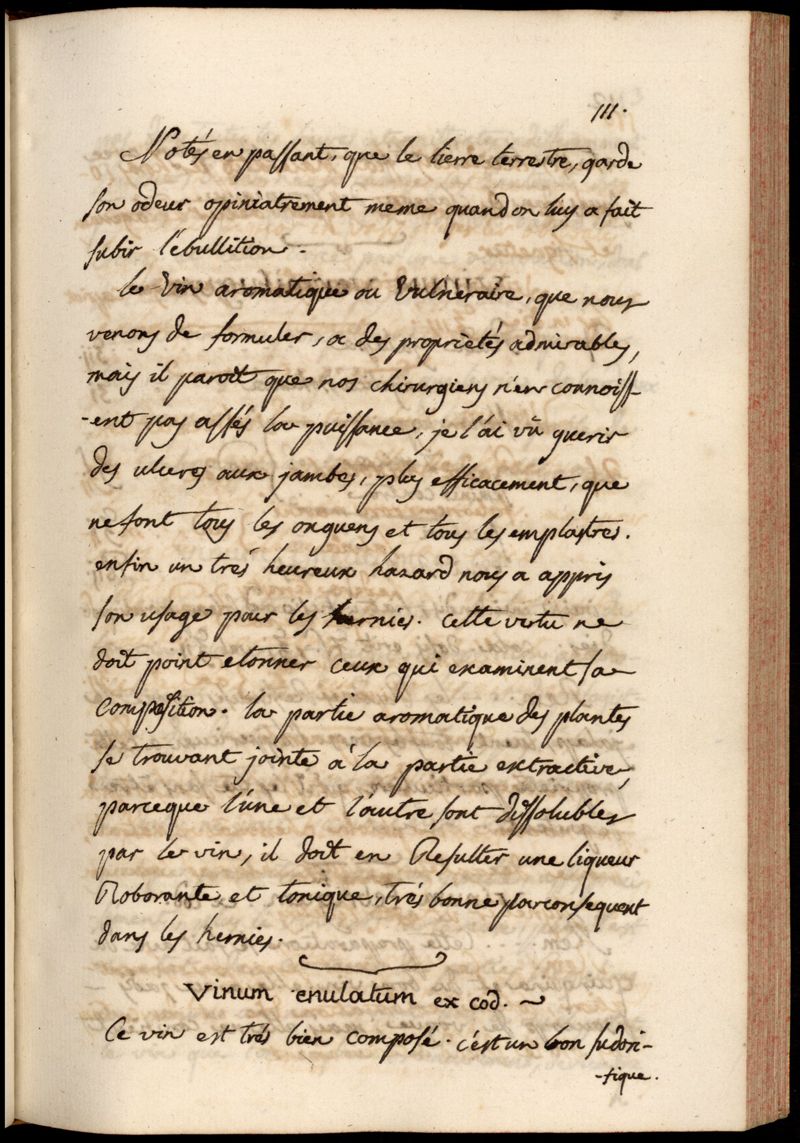 111.
Notés en passant, que le lierre terrestre, garde
son odeur opiniatrement meme quand on luy a fait
subir l'ébullition.
le Vin aromatique ou Vulneraire, que nous
venons de formuler, a des proprietés admirables,
mais il paroit que nos chirurgiens n'en connoiss-
-ent pas assés la puissance, je l'ai vû guerir
des ulceres aux jambes, plus efficacement, que
ne font tous les onguens et tous les emplastres.
enfin un très heureux hazard nous a appris
son usage pour les hernies. Cette vertu ne
doit point etonner ceux qui examinent sa
composition. la partie aromatique des plantes
se trouvant jointe à la partie extractive,
parceque l'une et l'autre sont dissolubles
par le vin, il doit en Resulter une liqueur
Roborante et tonique, très bonne par consequent
dans les hernies.
Vinum enulatum ex cod. ~
Ce vin est très bien composé. c'est un bon sudori-
-fique.